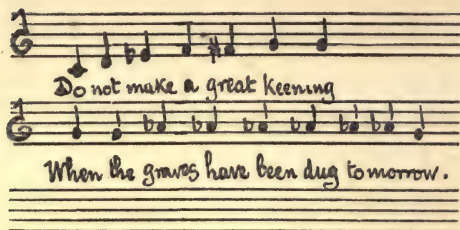 Do not make a great keening
When the graves have been dug tomorrow.